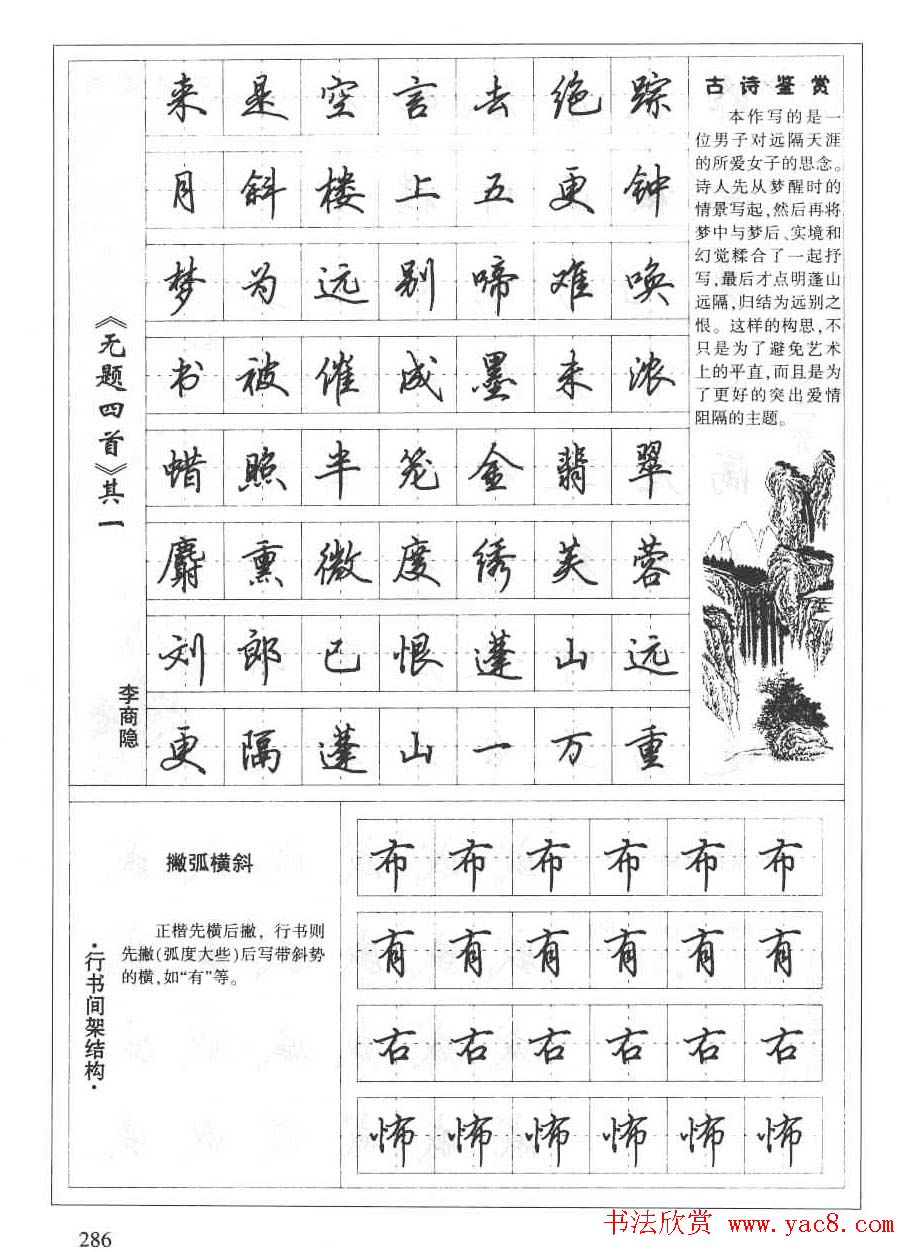 《无题四首》其一
李商隐
来是空言去绝踪
月斜楼上五更钟
梦为远别啼难唤
书被催成墨未浓
蜡照半笼金翡翠
麝熏微度绣芙蓉
刘郎已恨蓬山远
更隔蓬山一万重
古诗鉴赏
本作写的是一
位男子对远隔天涯
的所爱女子的思念。
诗人先从梦醒时的
情景写起,然后再将
梦中与梦后、实境和
幻觉糅合了一起抒
写,最后才点明蓬山
远隔,归结为远别之
恨。这样的构思,不
只是为了避免艺术
上的平直,而且是为
了更好的突出爱情
阻隔的主题。
·行书间架结构·
撇弧横斜
正楷先横后撇，行书则
先撇(弧度大些)后写带斜势
的横,如“有”等。
布布布布布布
有有有有有有
右右右右右右
怖怖怖怖怖怖
286
书法欣赏 www.yac8.com